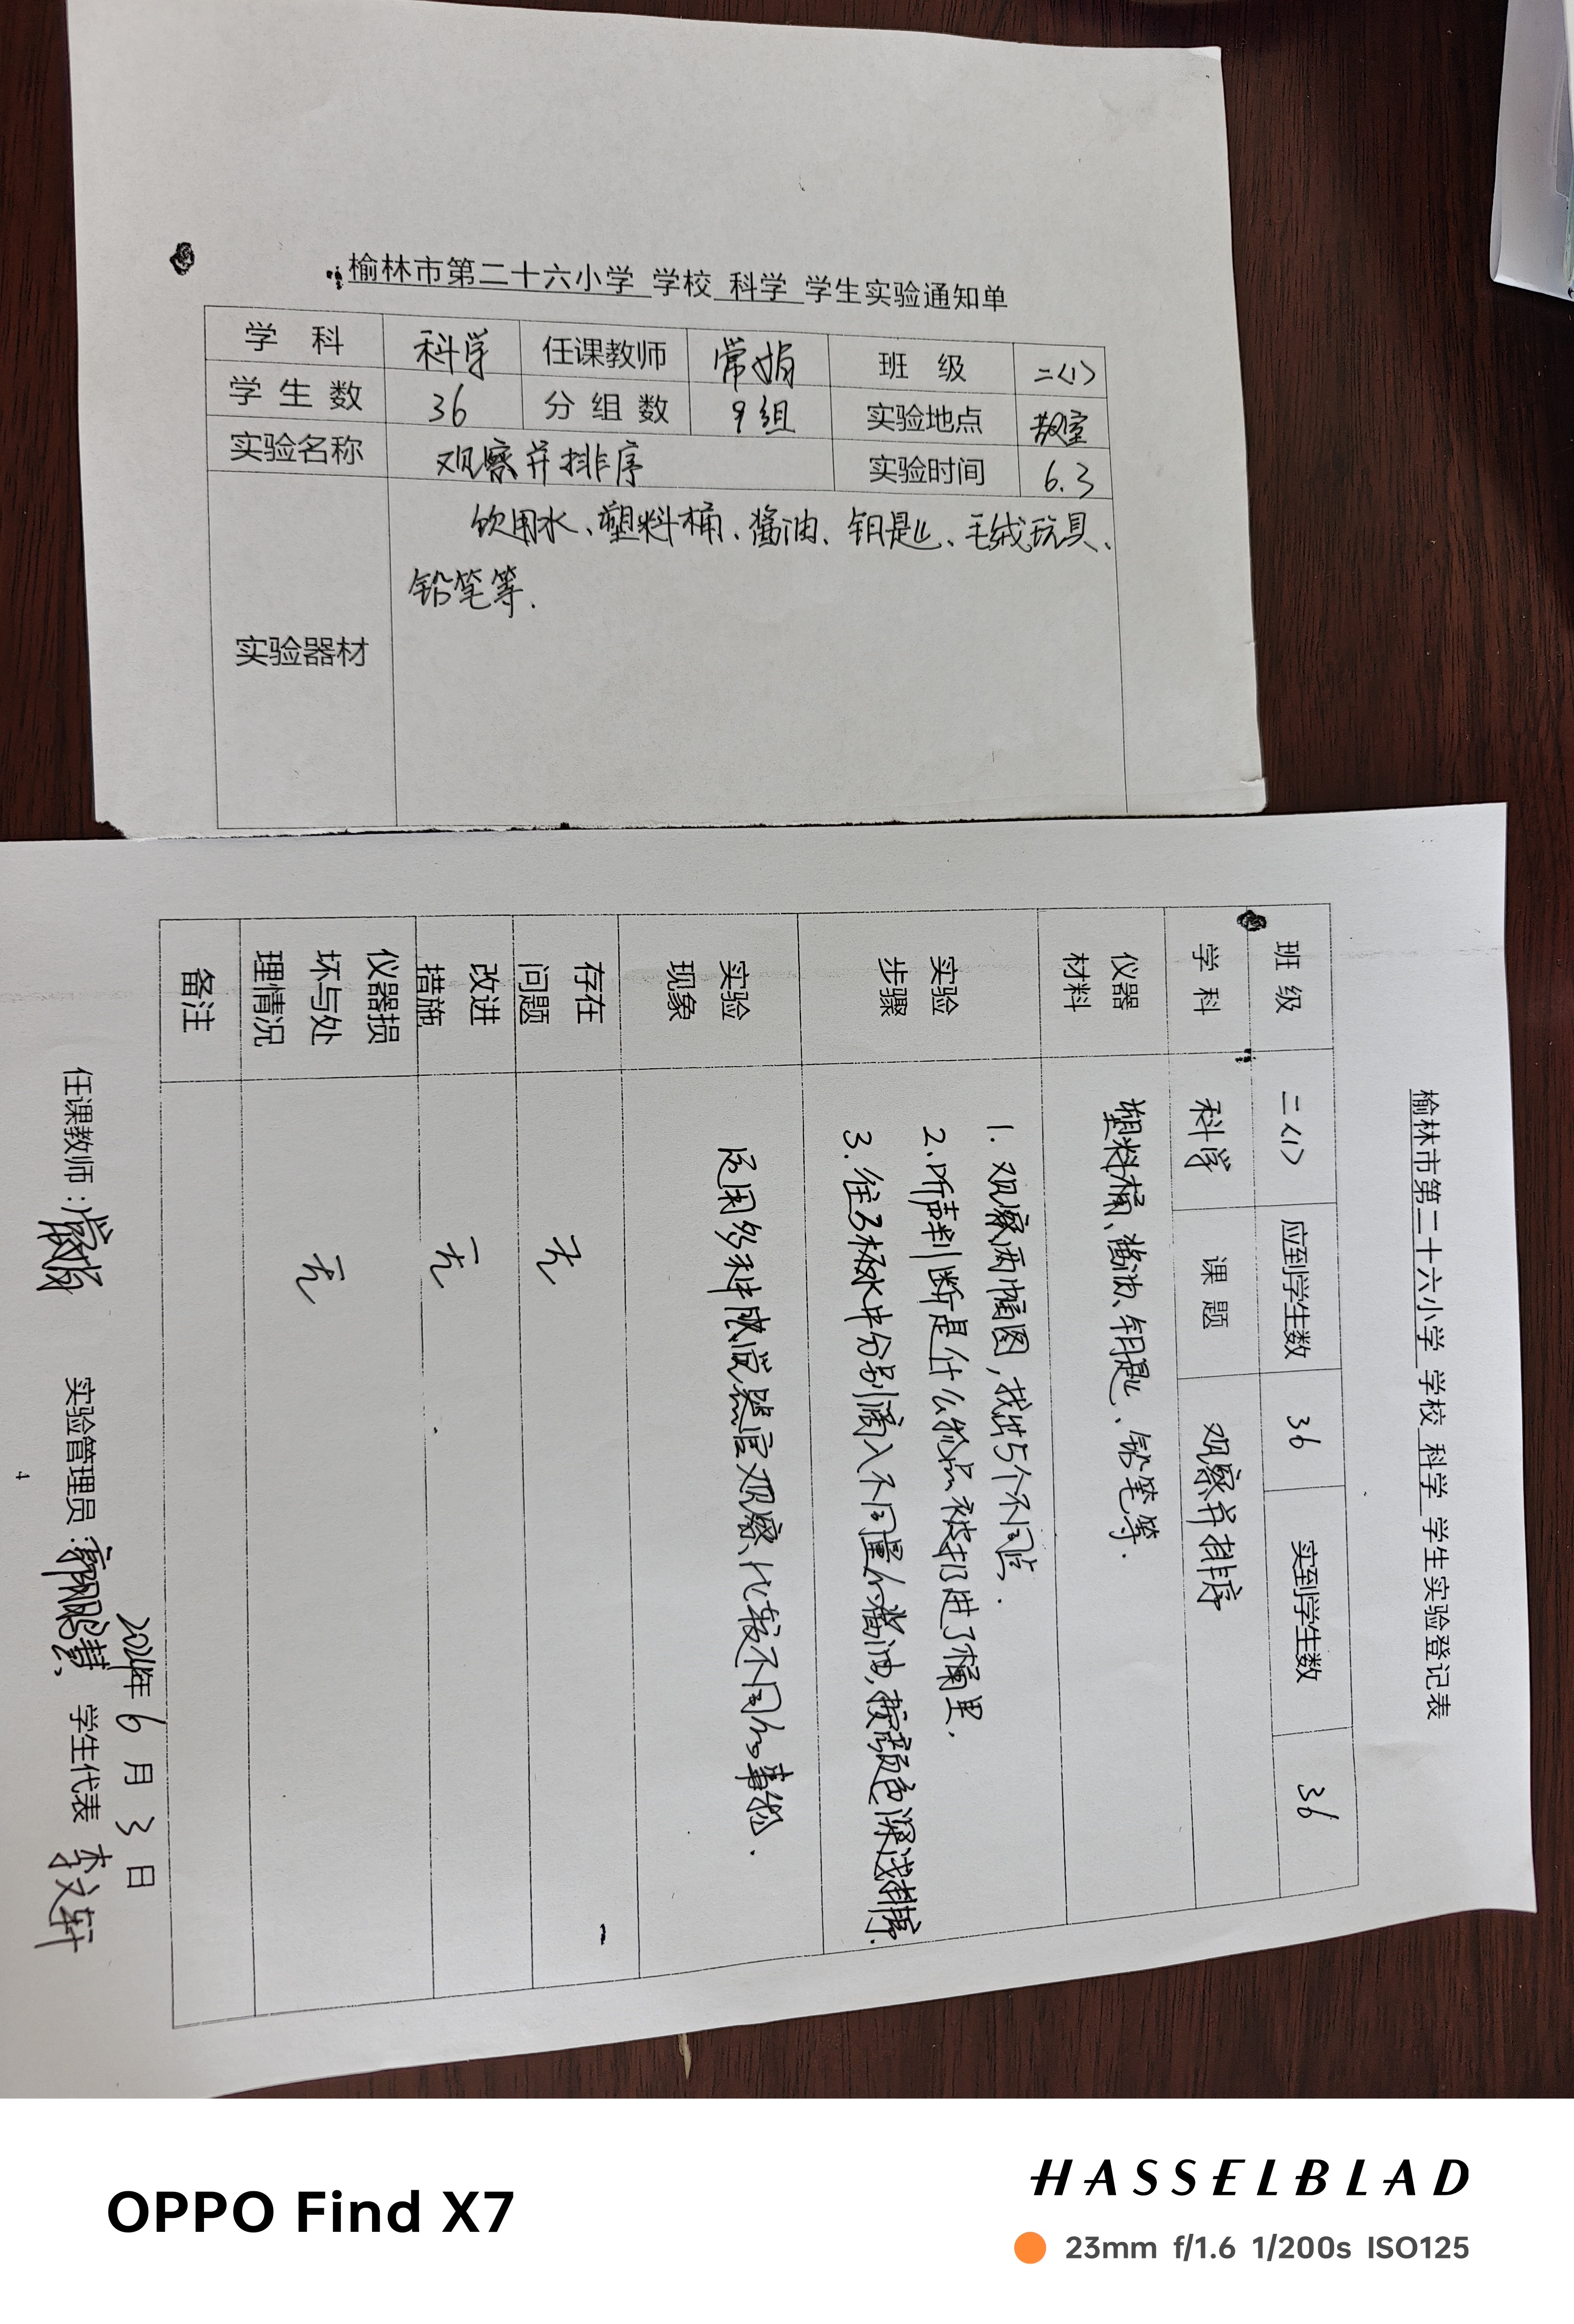 榆林市第二十六小学 学校 科学 学生实验通知单
学 科 科学 任课教师 常娟 班 级 二〈1〉
学 生 数 36 分 组 数 9组 实验地点 教室
实验名称 观察并排序 实验时间 6.3
实验器材 饮用水、塑料桶、酱油、钥匙、毛绒玩具、
铅笔等.
榆林市第二十六小学 学校 科学 学生实验登记表
班 级 二〈1〉 应到学生数 36 实到学生数 36
学 科 科学 课 题 观察并排序
仪器
材料
塑料桶、酱油、钥匙、铅笔等.
实验
步骤
1. 观察两幅图,找出5个不同点.
2.听声判断是什么物品被扔进了桶里.
3.往3杯水中分别滴入不同量的酱油,按颜色深浅排序.
实验
现象
运用多种感觉器官观察、比较不同的事物.
存在
问题
无
改进
措施
无
仪器损
坏与处
理情况
无
备注
2024年 6 月 3 日
任课教师:常娟 实验管理员: 学生代表 李文轩
4
OPPO Find X7
HASSELBLAD
23mm f/1.6 1/200s ISO125